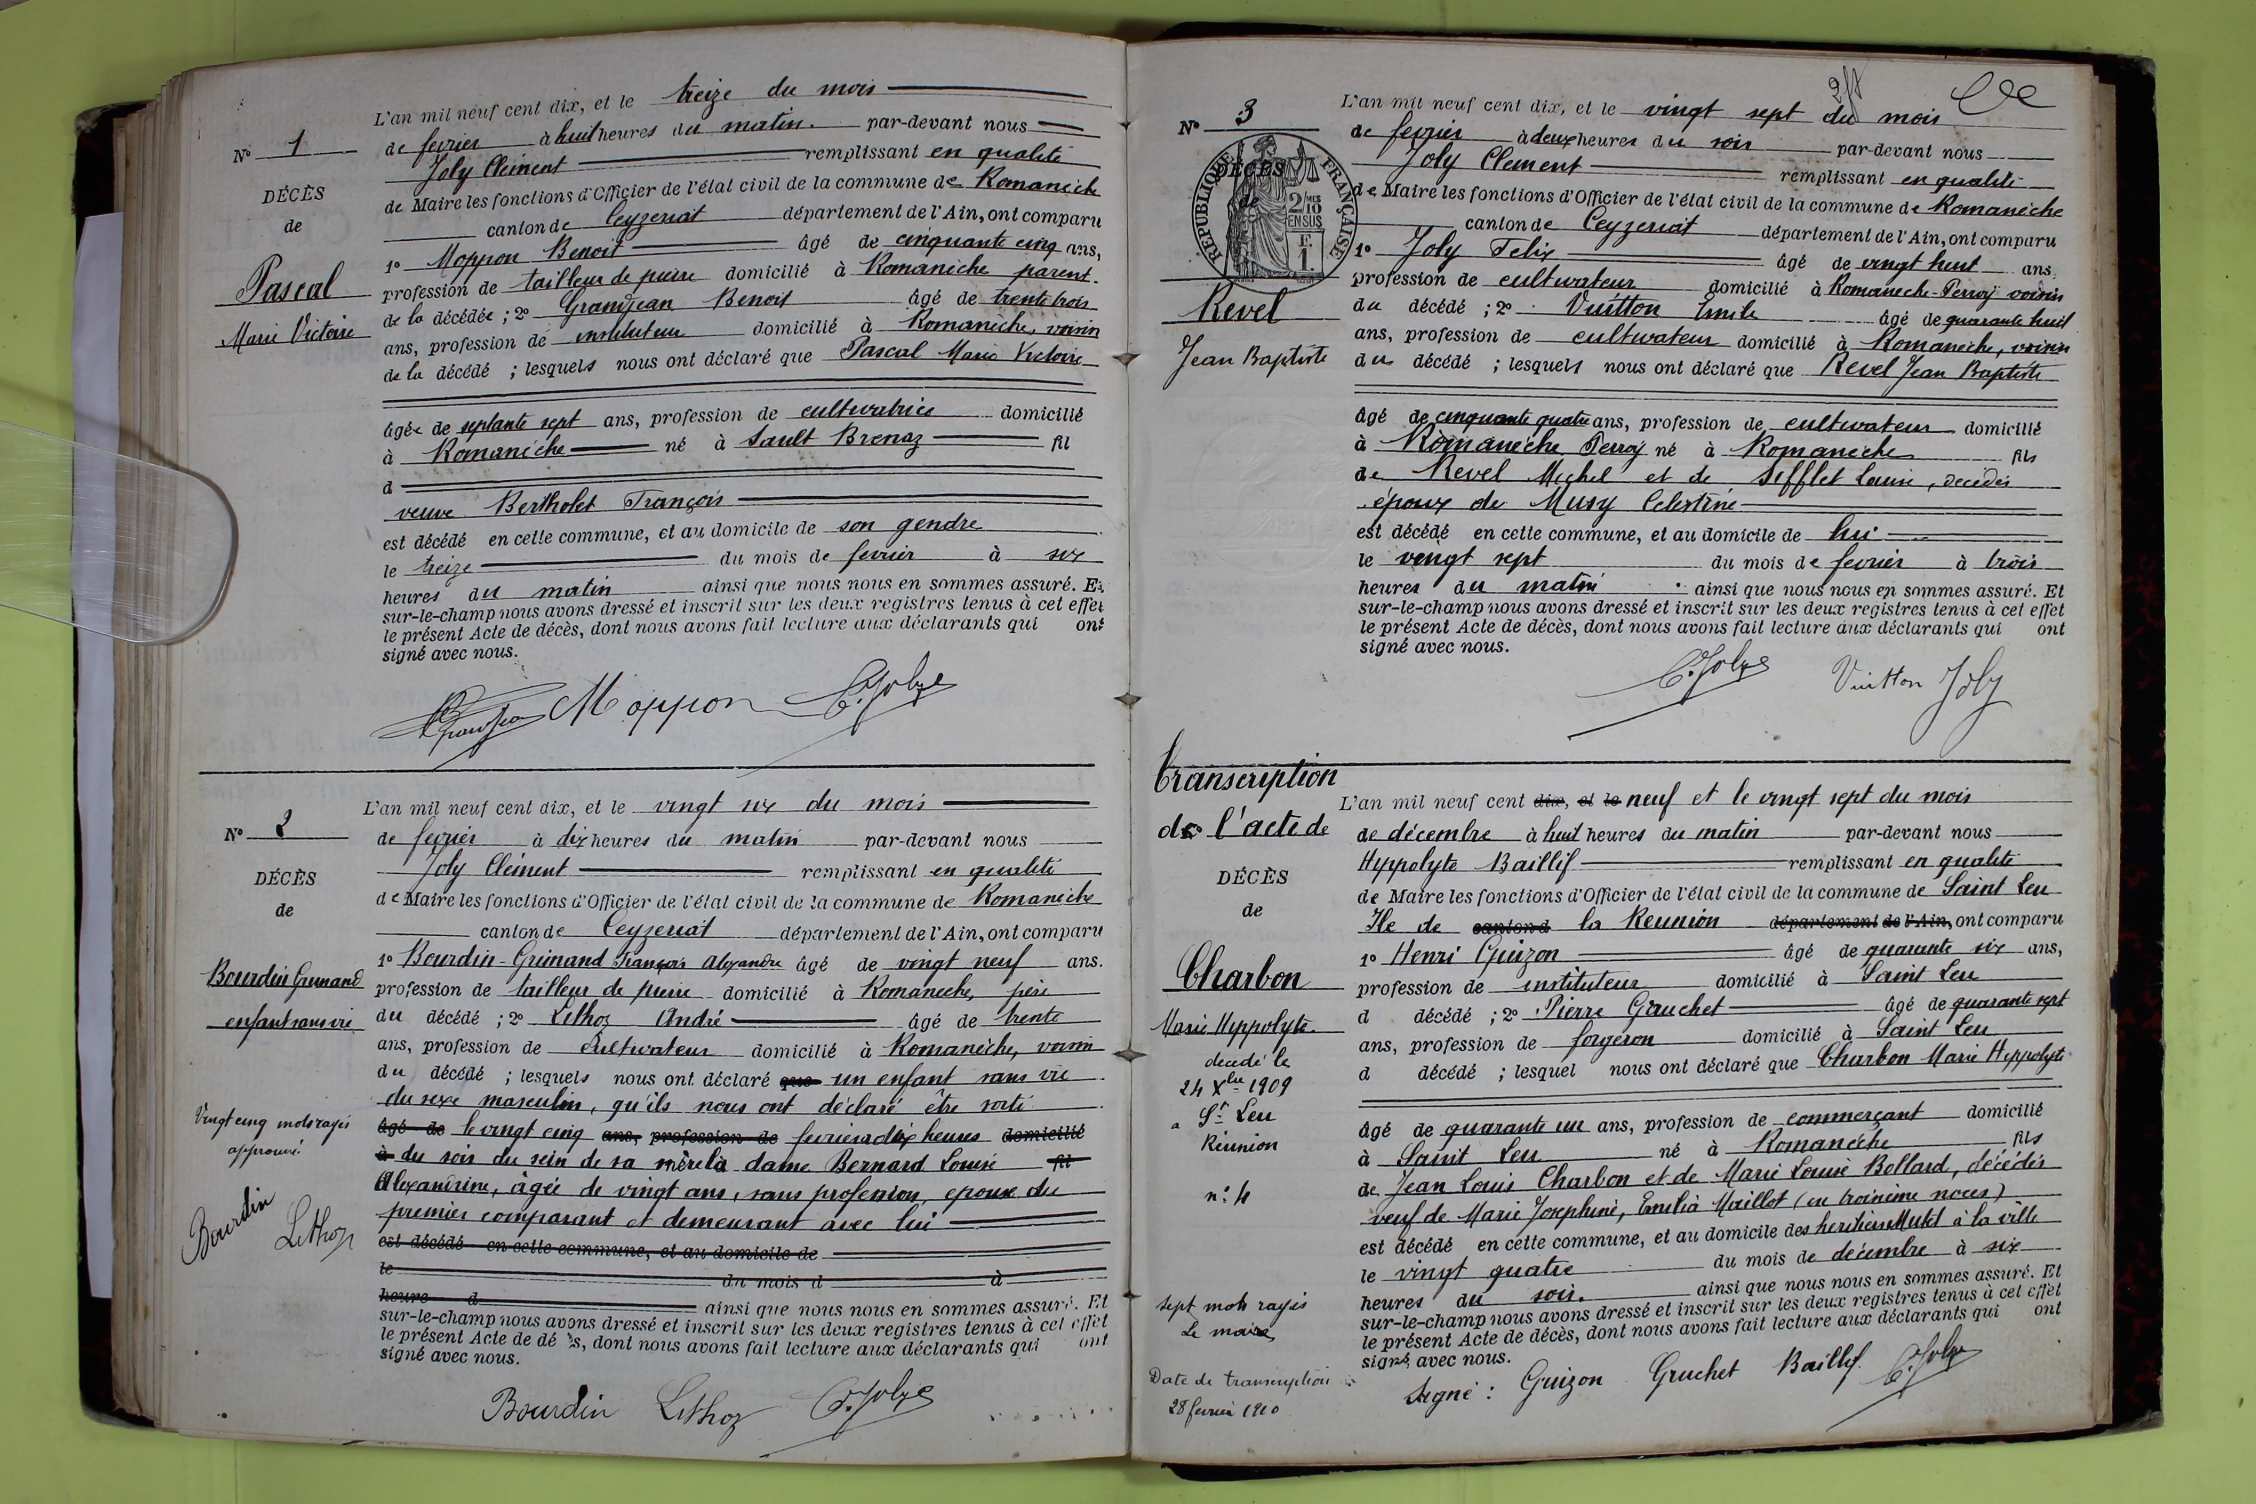 L'an mil neuf cent dix, et le treize du mois
Nº 1
de fevrier à huit heures du matin. par-devant nous
Joly Clément remplissant en qualité
DÉCÈS
de Maire les fonctions d'Officier de l'état civil de la commune de Romanèche
de
canton de Ceyzeriat département de l'Ain, ont comparu
1º Moppon Benoit âgé de cinquante cinq ans,
Pascal
profession de tailleur de pierre domicilié à Romanèche parent
de la décédée ; 2º Grandjean Benoit âgé de trente trois
Marie Victoire
ans, profession de instituteur domicilié à Romanèche, voisin
de la décédé ; lesquels nous ont déclaré que Pascal Marie Victoire
âgée de septante sept ans, profession de cultivatrice domicilié
à Romanèche né à Sault Brenaz fil
d
veuve Bertholet François
est décédé en cette commune, et au domicile de son gendre
le treize du mois de fevrier à six
heures du matin ainsi que nous nous en sommes assuré. Et
sur-le-champ nous avons dressé et inscrit sur les deux registres tenus à cet effet
le présent Acte de décès, dont nous avons fait lecture aux déclarants qui ont
signé avec nous.
Moppon C. Joly
L'an mil neuf cent dix, et le vingt six du mois
Nº 2
de fevrier à dix heures du matin par-devant nous
Joly Clément remplissant en qualité
DÉCÈS
de Maire les fonctions d'Officier de l'état civil de la commune de Romanèche
de
canton de Ceyzeriat département de l'Ain, ont comparu
1º Bourdin-Grimand François Alexandre âgé de vingt neuf ans.
Bourdin Grimand
profession de tailleur de pierre domicilié à Romanèche, père
enfant sans vie
du décédé ; 2º Lethoz André âgé de trente
ans, profession de cultivateur domicilié à Romanèche, voisin
du décédé ; lesquels nous ont déclaré que un enfant sans vie
du sexe masculin, qu'ils nous ont déclaré être sorti
Vingt cinq mots rayés
approuvé
âgé de le vingt cinq ans, profession de fevrier à dix heures domicilié
à du soir du sein de sa mère la dame Bernard Louise fil
Alexandrine, âgée de vingt ans, sans profession, epouse du
premier comparant et demeurant avec lui
Bourdin Lethoz
est décédé en cette commune, et au domicile de
le du mois d à
heure d ainsi que nous nous en sommes assuré. Et
sur-le-champ nous avons dressé et inscrit sur les deux registres tenus à cet effet
le présent Acte de décès, dont nous avons fait lecture aux déclarants qui ont
signé avec nous.
Bourdin Lethoz C. Joly
L'an mil neuf cent dix, et le vingt sept du mois
Nº 3
de fevrier à deux heures du soir par-devant nous
Joly Clément remplissant en qualité
DÉCÈS
de
RÉPUBLIQUE FRANÇAISE
2/10 EN SUS
F. 1.
de Maire les fonctions d'Officier de l'état civil de la commune de Romanèche
canton de Ceyzeriat département de l'Ain, ont comparu
1º Joly Felix âgé de vingt huit ans.
profession de cultivateur domicilié à Romanèche-Perroy voisin
Revel
du décédé ; 2º Vuitton Emile âgé de quarante huit
ans, profession de cultivateur domicilié à Romanèche, voisin
Jean Baptiste
du décédé ; lesquels nous ont déclaré que Revel Jean Baptiste
âgé de cinquante quatre ans, profession de cultivateur domicilié
à Romanèche Perroy né à Romanèche fils
de Revel Michel et de Sifflet Louise, décédés
époux de Musy Celestine
est décédé en cette commune, et au domicile de lui
le vingt sept du mois de fevrier à trois
heures du matin ainsi que nous nous en sommes assuré. Et
sur-le-champ nous avons dressé et inscrit sur les deux registres tenus à cet effet
le présent Acte de décès, dont nous avons fait lecture aux déclarants qui ont
signé avec nous.
C. Joly Vuitton Joly
Transcription
de l'acte de
DÉCÈS
de
Charbon
Marie Hyppolyte
decedé le
24 Xbre 1909
a St Leu
Réunion
nº 4
L'an mil neuf cent dix, et le neuf et le vingt sept du mois
de décembre à huit heures du matin par-devant nous
Hyppolyte Baillif remplissant en qualité
de Maire les fonctions d'Officier de l'état civil de la commune de Saint Leu
Ile de canton d la Reunion département de l'Ain, ont comparu
1º Henri Guizon âgé de quarante six ans,
profession de instituteur domicilié à Saint Leu
d décédé ; 2º Pierre Gruchet âgé de quarante sept
ans, profession de forgeron domicilié à Saint Leu
d décédé ; lesquel nous ont déclaré que Charbon Marie Hyppolyte
âgé de quarante un ans, profession de commerçant domicilié
à Saint Leu né à Romanèche fils
de Jean Louis Charbon et de Marie Louise Bollard, décédés
veuf de Marie Josephine, Emilia Maillot (en troisième noces)
est décédé en cette commune, et au domicile des heritiers Mutel à la ville
le vingt quatre du mois de décembre à six
heures du soir. ainsi que nous nous en sommes assuré. Et
sur-le-champ nous avons dressé et inscrit sur les deux registres tenus à cet effet
le présent Acte de décès, dont nous avons fait lecture aux déclarants qui ont
signé avec nous.
sept mots rayés
Le maire
Date de transcription
28 fevrier 1910
Signé : Guizon Gruchet Baillif C. Joly